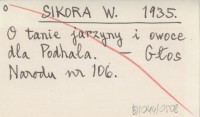 SIKORA W. 1935.
O tanie jarzyny i owoce
dla Podhala. — Głos
Narodu nr 106.